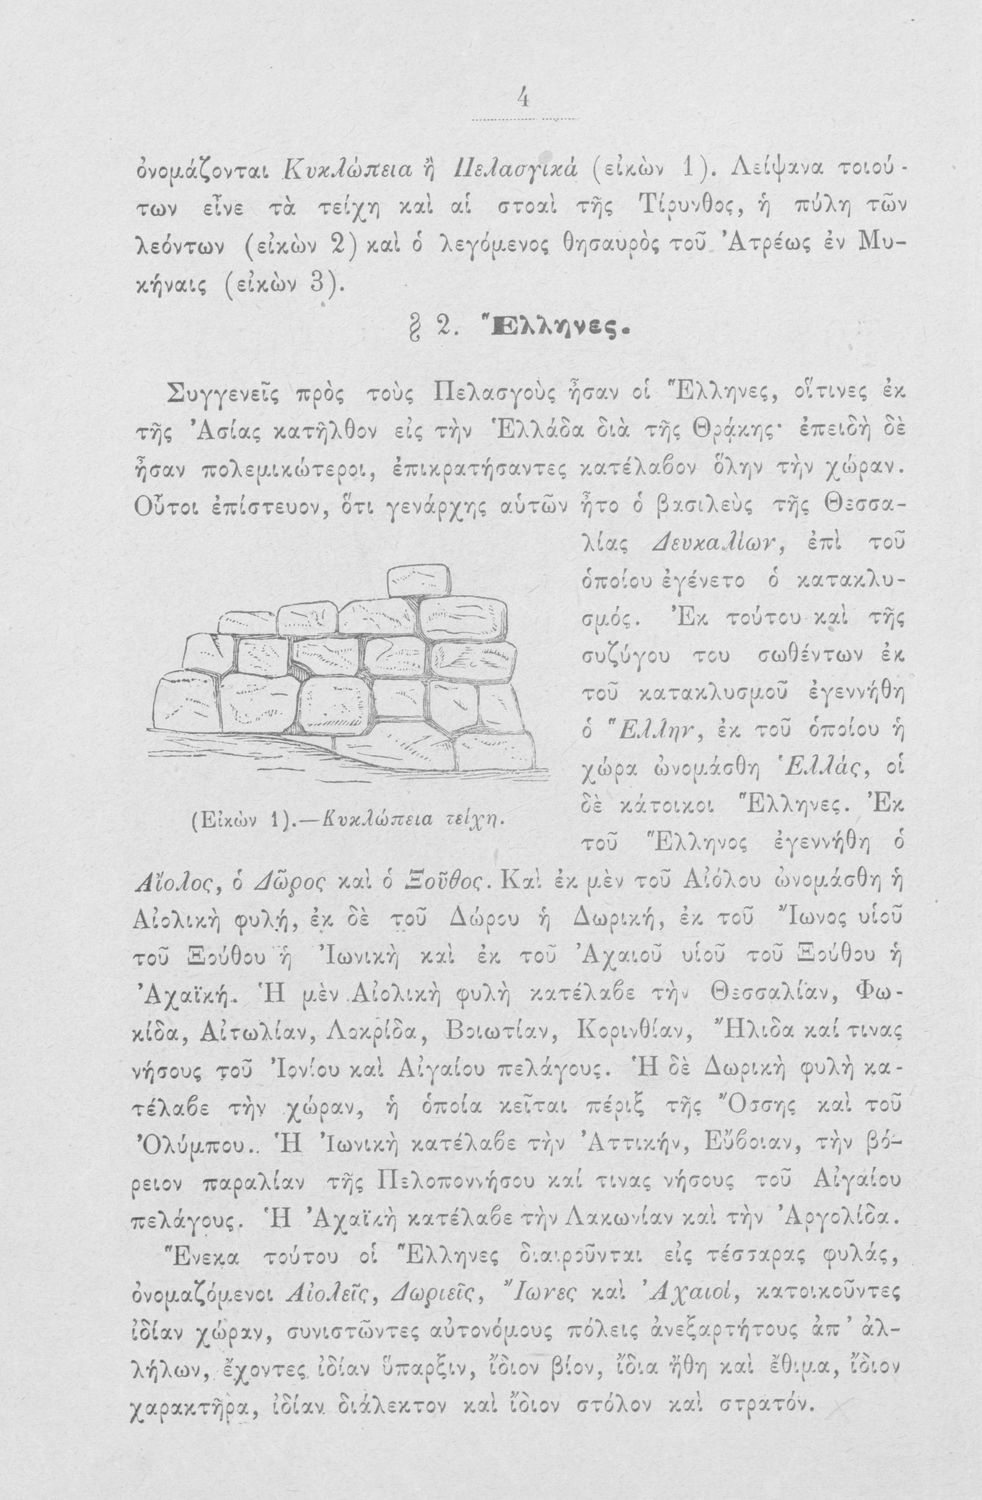 4
ὀνομάζονται Κυκλώπεια ἢ Πελασγικά (εἰκὼν 1). Λείψανα τοιού-
των εἶνε τὰ τείχη καὶ αἱ στοαὶ τῆς Τίρυνθος, ἡ πύλη τῶν
λεόντων (εἰκὼν 2) καὶ ὁ λεγόμενος θησαυρὸς τοῦ Ἀτρέως ἐν Μυ-
κήναις (εἰκὼν 3).
§ 2. Ἕλληνες.
Συγγενεῖς πρὸς τοὺς Πελασγοὺς ἦσαν οἱ Ἕλληνες, οἵτινες ἐκ
τῆς Ἀσίας κατῆλθον εἰς τὴν Ἑλλάδα διὰ τῆς Θρᾴκης· ἐπειδὴ δὲ
ἦσαν πολεμικώτεροι, ἐπικρατήσαντες κατέλαβον ὅλην τὴν χώραν.
Οὗτοι ἐπίστευον, ὅτι γενάρχης αὐτῶν ἦτο ὁ βασιλεὺς τῆς Θεσσα-
λίας Δευκαλίων, ἐπὶ τοῦ
ὁποίου ἐγένετο ὁ κατακλυ-
σμός. Ἐκ τούτου καὶ τῆς
συζύγου του σωθέντων ἐκ
τοῦ κατακλυσμοῦ ἐγεννήθη
ὁ Ἕλλην, ἐκ τοῦ ὁποίου ἡ
χώρα ὠνομάσθη Ἑλλάς, οἱ
δὲ κάτοικοι Ἕλληνες. Ἐκ
τοῦ Ἕλληνος ἐγεννήθη ὁ
(Εἰκὼν 1).—Κυκλώπεια τείχη.
Αἴολος, ὁ Δῶρος καὶ ὁ Ξοῦθος. Καὶ ἐκ μὲν τοῦ Αἰόλου ὠνομάσθη ἡ
Αἰολικὴ φυλή, ἐκ δὲ τοῦ Δώρου ἡ Δωρική, ἐκ τοῦ Ἴωνος υἱοῦ
τοῦ Ξούθου ἡ Ἰωνικὴ καὶ ἐκ τοῦ Ἀχαιοῦ υἱοῦ τοῦ Ξούθου ἡ
Ἀχαϊκή. Ἡ μὲν Αἰολικὴ φυλὴ κατέλαβε τὴν Θεσσαλίαν, Φω-
κίδα, Αἰτωλίαν, Λοκρίδα, Βοιωτίαν, Κορινθίαν, Ἤλιδα καί τινας
νήσους τοῦ Ἰονίου καὶ Αἰγαίου πελάγους. Ἡ δὲ Δωρικὴ φυλὴ κα-
τέλαβε τὴν χώραν, ἡ ὁποία κεῖται πέριξ τῆς Ὄσσης καὶ τοῦ
Ὀλύμπου. Ἡ Ἰωνικὴ κατέλαβε τὴν Ἀττικήν, Εὔβοιαν, τὴν βό-
ρειον παραλίαν τῆς Πελοποννήσου καί τινας νήσους τοῦ Αἰγαίου
πελάγους. Ἡ Ἀχαϊκὴ κατέλαβε τὴν Λακωνίαν καὶ τὴν Ἀργολίδα.
Ἕνεκα τούτου οἱ Ἕλληνες διαιροῦνται εἰς τέσσαρας φυλάς,
ὀνομαζόμενοι Αἰολεῖς, Δωριεῖς, Ἴωνες καὶ Ἀχαιοί, κατοικοῦντες
ἰδίαν χώραν, συνιστῶντες αὐτονόμους πόλεις ἀνεξαρτήτους ἀπ' ἀλ-
λήλων, ἔχοντες ἰδίαν ὕπαρξιν, ἴδιον βίον, ἴδια ἤθη καὶ ἔθιμα, ἴδιον
χαρακτῆρα, ἰδίαν διάλεκτον καὶ ἴδιον στόλον καὶ στρατόν.